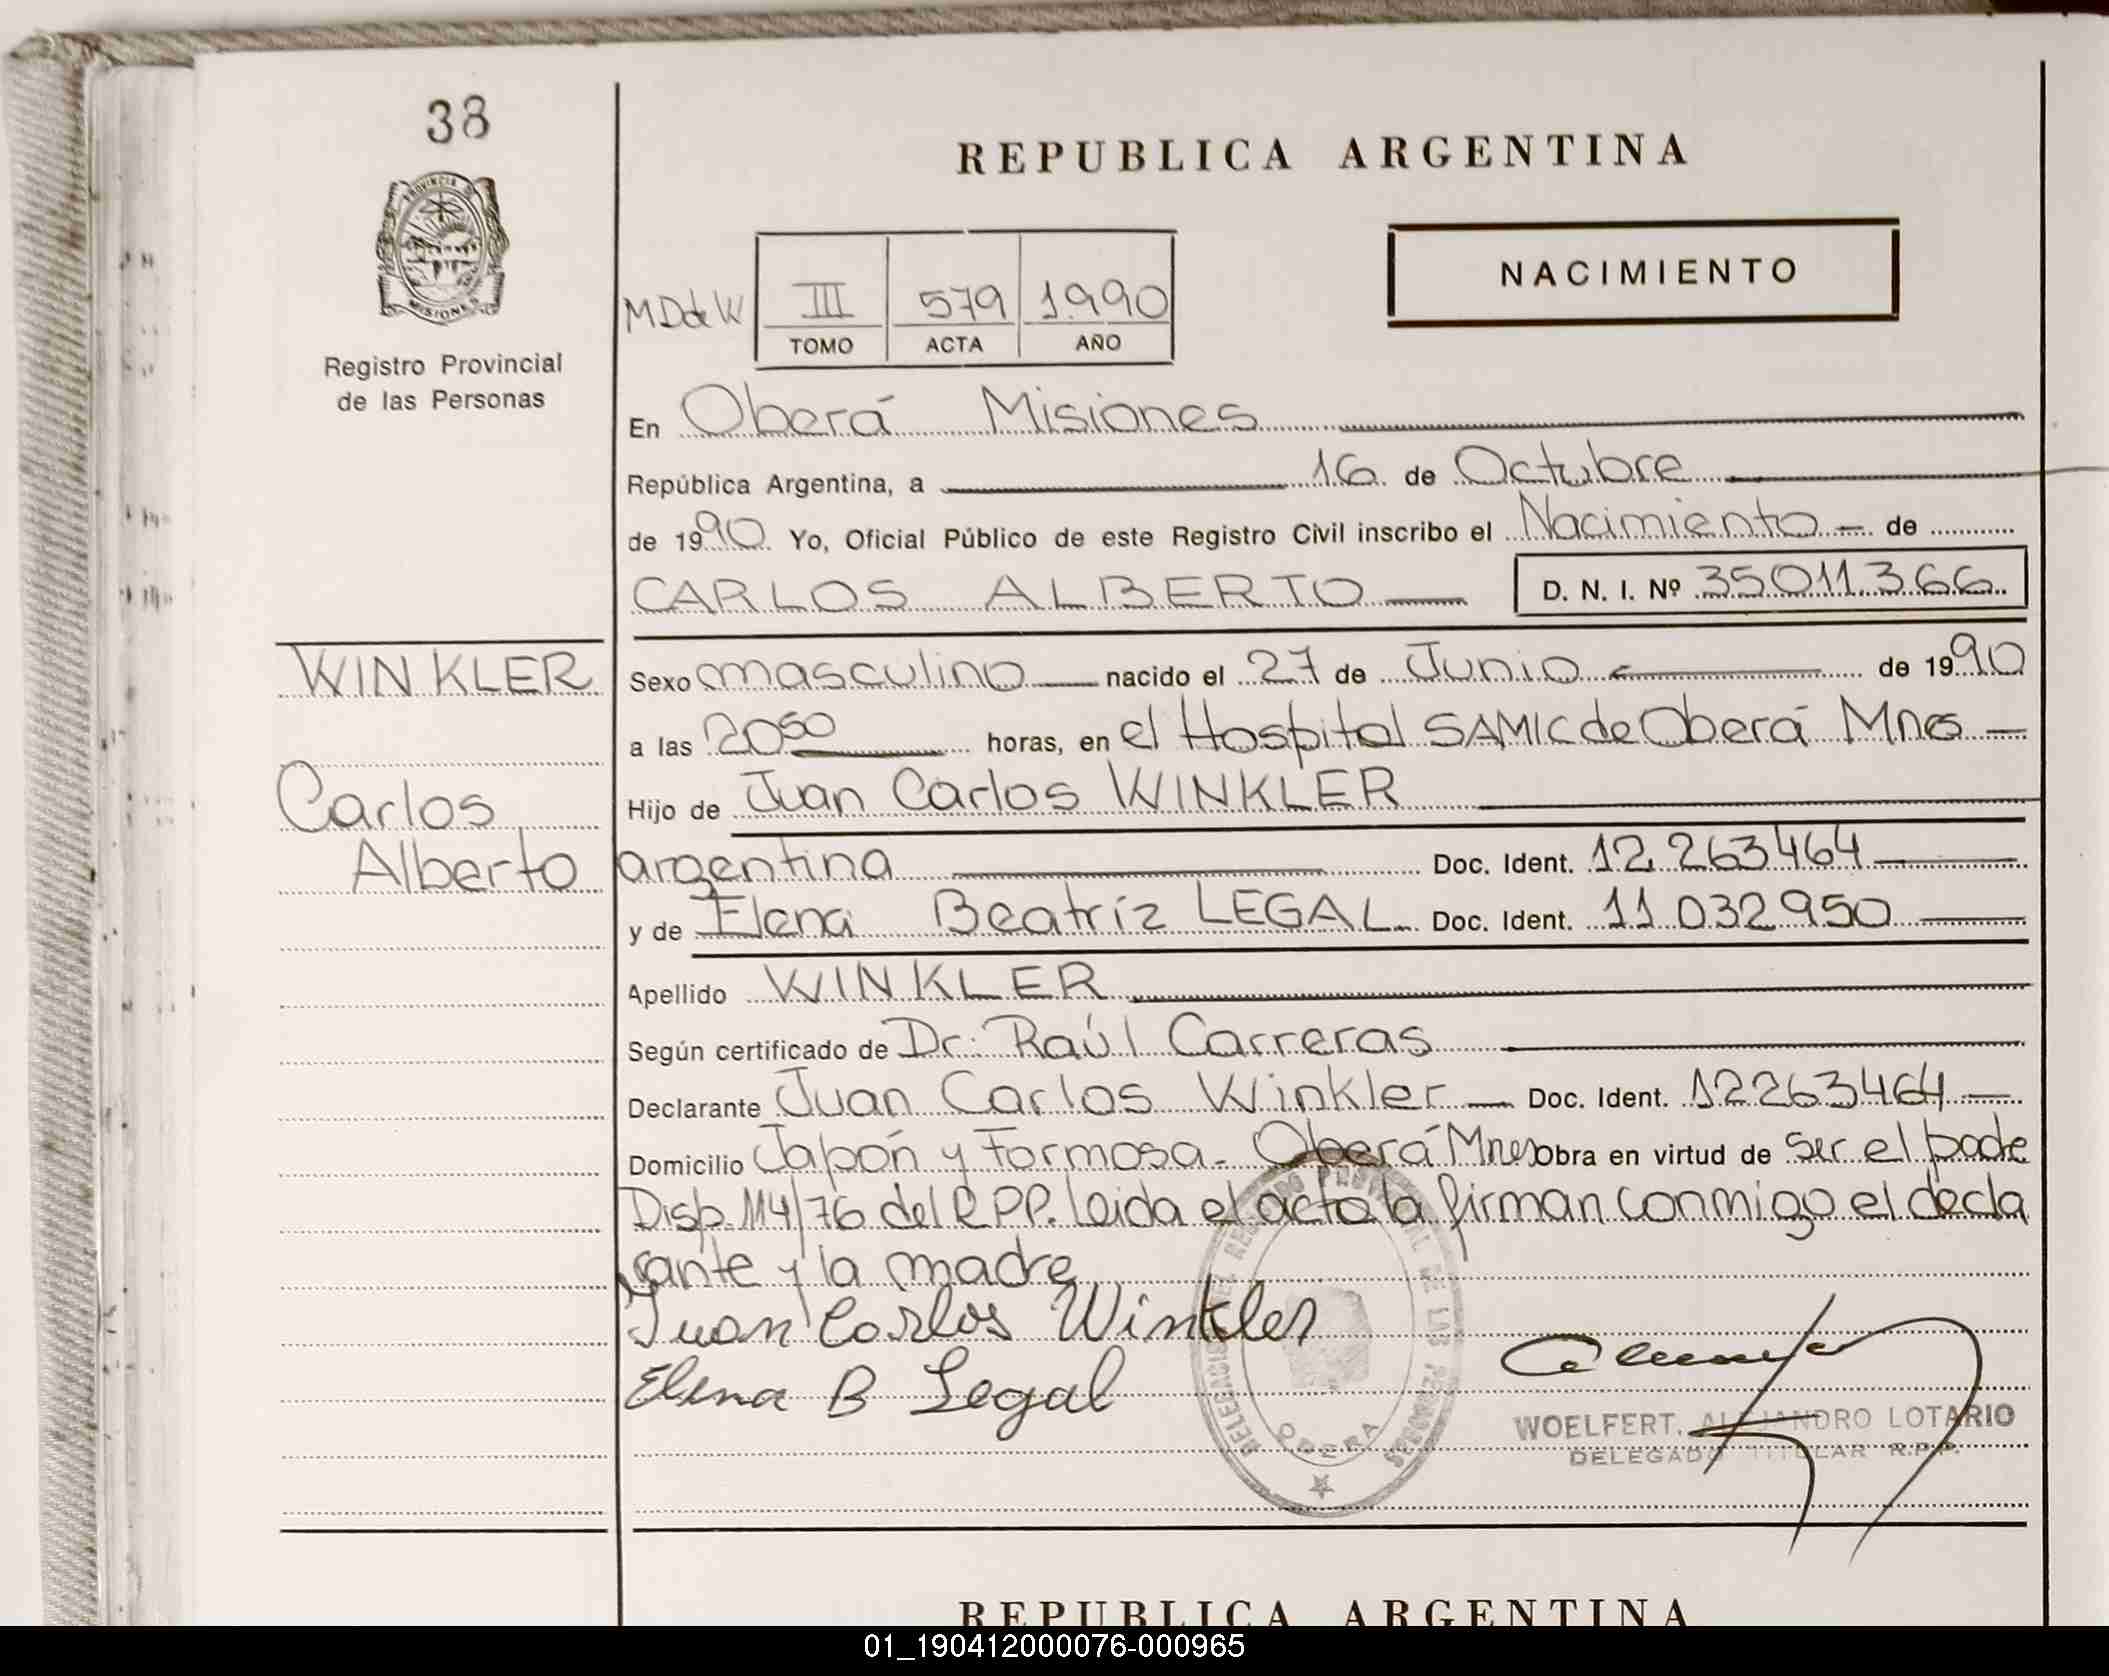 38
PROVINCIA D
MISIONES
Registro Provincial
de las Personas
REPUBLICA ARGENTINA
NACIMIENTO
MDdW III 579 1.990
TOMO ACTA AÑO
En Oberá Misiones
República Argentina, a 16 de Octubre
de 1990 Yo, Oficial Público de este Registro Civil inscribo el Nacimiento de
CARLOS ALBERTO D. N. I. Nº 35011.366
WINKLER
Carlos
Alberto
Sexo masculino nacido el 27 de Junio de 1990
a las 20 50 horas, en el Hospital SAMIC de Oberá Mnes
Hijo de Juan Carlos WINKLER
argentina Doc. Ident. 12.263464
y de Elena Beatríz LEGAL Doc. Ident. 11.032950
Apellido WINKLER
Según certificado de Dr. Raúl Carreras
Declarante Juan Carlos Winkler Doc. Ident. 12263464
Domicilio Japón y Formosa - Oberá Mnes obra en virtud de ser el padre
Disp. 114/76 del RPP. leida el acta la firman conmigo el decla
rante y la madre
Juan Carlos Winkler
Elena B Legal
DELEGACION DEL REGISTRO PROVINCIAL DE LAS PERSONAS
OBERA
WOELFERT, ALEJANDRO LOTARIO
DELEGADO TITULAR R.P.P.
REPUBLICA ARGENTINA
01_190412000076-000965